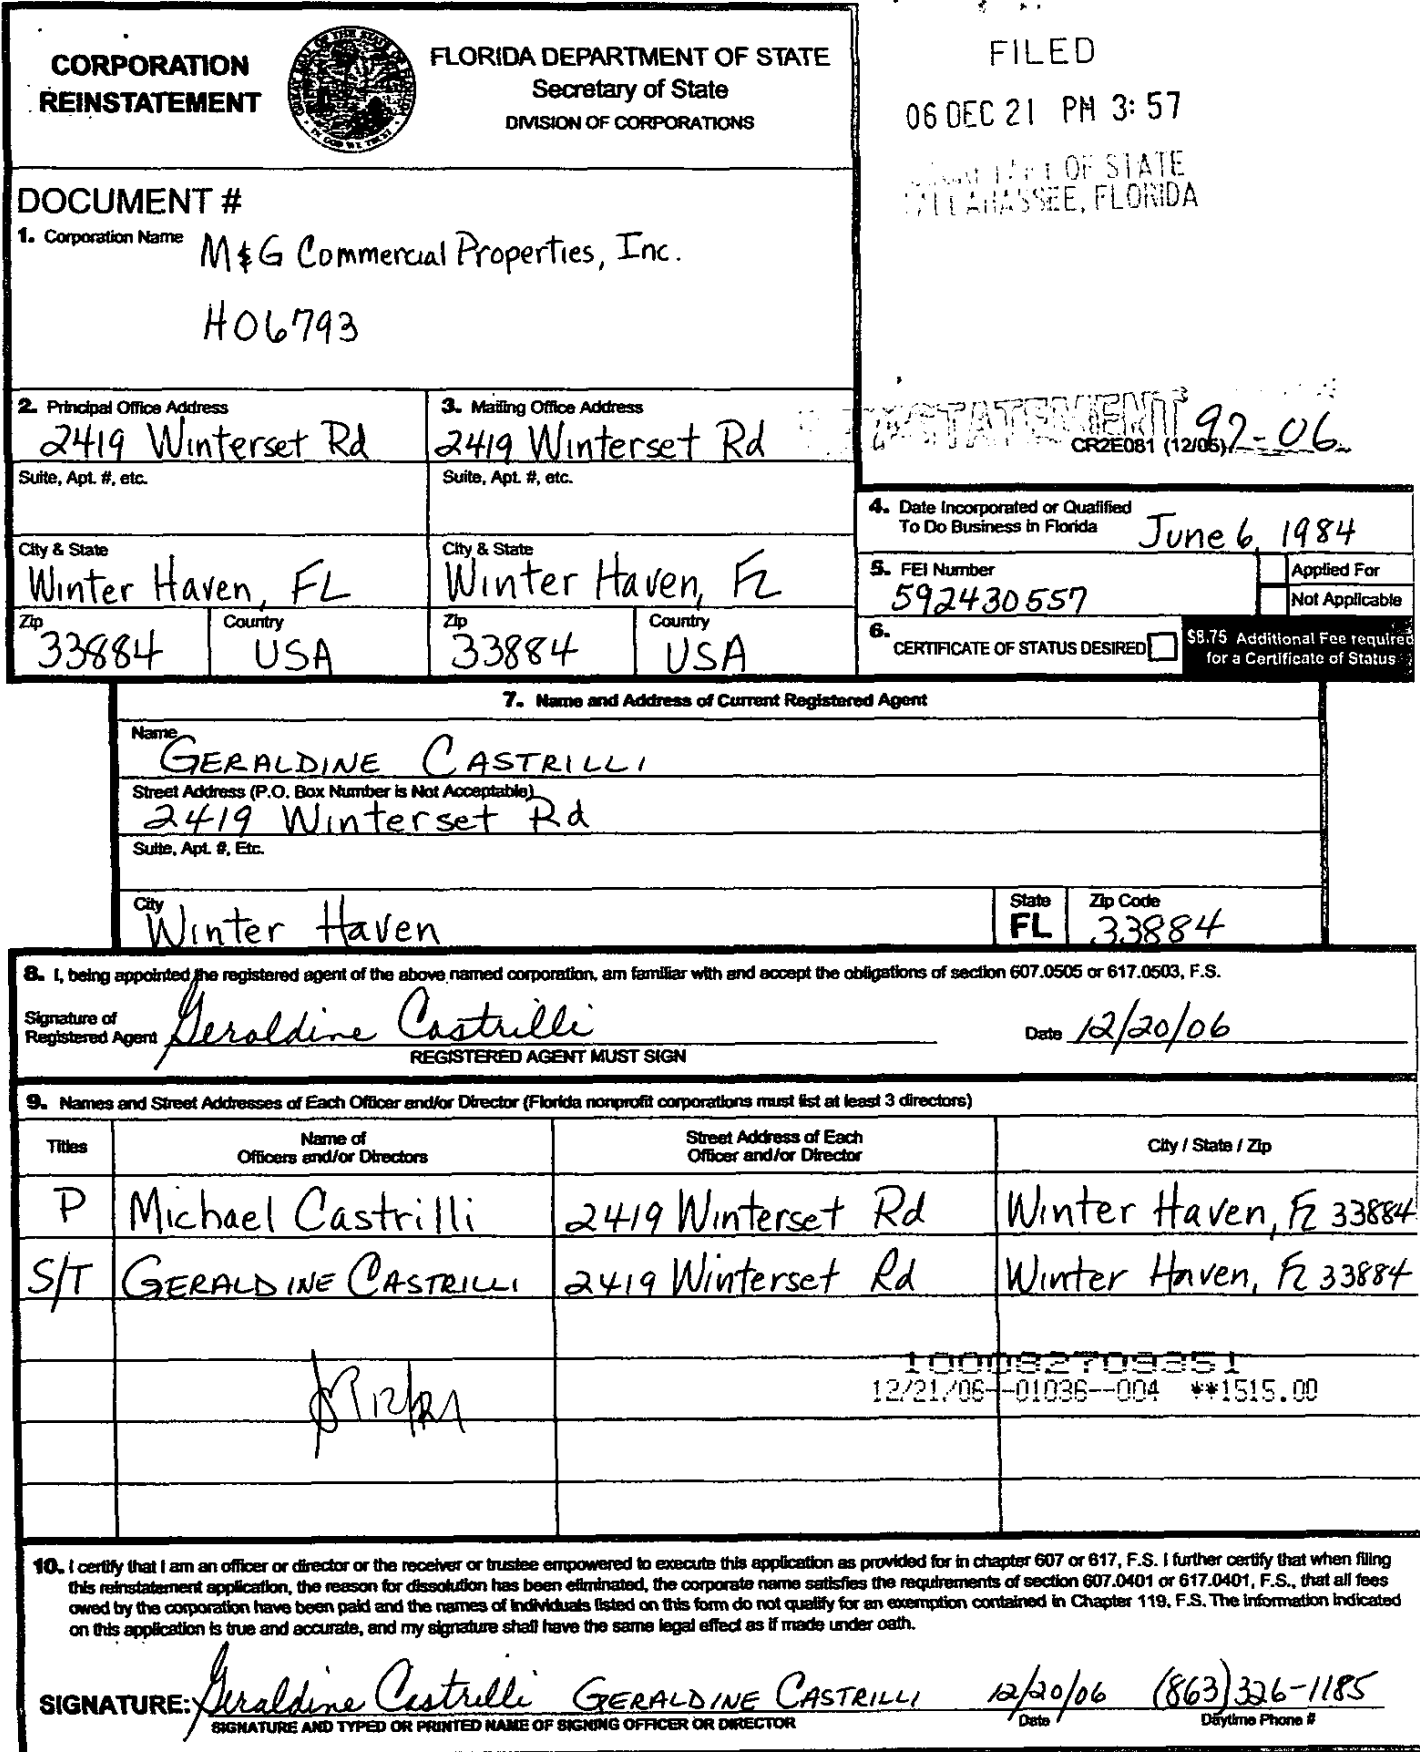 CORPORATION
REINSTATEMENT
FLORIDA DEPARTMENT OF STATE
Secretary of State
DIVISION OF CORPORATIONS
FILED
06 DEC 21 PM 3:57
OF STATE
TALLAHASSEE, FLORIDA
DOCUMENT #
1. Corporation Name M & G Commercial Properties, Inc.
H06793
REINSTATEMENT 92-06
CR2E081 (12/05)
2. Principal Office Address
2419 Winterset Rd
3. Mailing Office Address
2419 Winterset Rd
Suite, Apt. #, etc.
Suite, Apt. #, etc.
City & State
Winter Haven, FL
City & State
Winter Haven, FL
Zip 33884
Country USA
Zip 33884
Country USA
4. Date Incorporated or Qualified
To Do Business in Florida June 6, 1984
5. FEI Number
592430557
Applied For
Not Applicable
6. CERTIFICATE OF STATUS DESIRED
$8.75 Additional Fee required
for a Certificate of Status
7. Name and Address of Current Registered Agent
Name
GERALDINE CASTRILLI
Street Address (P.O. Box Number is Not Acceptable)
2419 Winterset Rd
Suite, Apt. #, Etc.
City Winter Haven
State FL
Zip Code 33884
8. I, being appointed the registered agent of the above named corporation, am familiar with and accept the obligations of section 607.0505 or 617.0503, F.S.
Signature of
Registered Agent Geraldine Castrilli Date 12/20/06
REGISTERED AGENT MUST SIGN
9. Names and Street Addresses of Each Officer and/or Director (Florida nonprofit corporations must list at least 3 directors)
Titles
Name of
Officers and/or Directors
Street Address of Each
Officer and/or Director
City / State / Zip
P Michael Castrilli 2419 Winterset Rd Winter Haven, FL 33884
S/T GERALDINE CASTRILLI 2419 Winterset Rd Winter Haven, FL 33884
100082709351
12/21/06--01036--004 **1515.00
12/21
10. I certify that I am an officer or director or the receiver or trustee empowered to execute this application as provided for in chapter 607 or 617, F.S. I further certify that when filing
this reinstatement application, the reason for dissolution has been eliminated, the corporate name satisfies the requirements of section 607.0401 or 617.0401, F.S., that all fees
owed by the corporation have been paid and the names of individuals listed on this form do not qualify for an exemption contained in Chapter 119, F.S. The information indicated
on this application is true and accurate, and my signature shall have the same legal effect as if made under oath.
SIGNATURE: Geraldine Castrilli GERALDINE CASTRILLI 12/20/06 (863)326-1185
SIGNATURE AND TYPED OR PRINTED NAME OF SIGNING OFFICER OR DIRECTOR Date Daytime Phone #